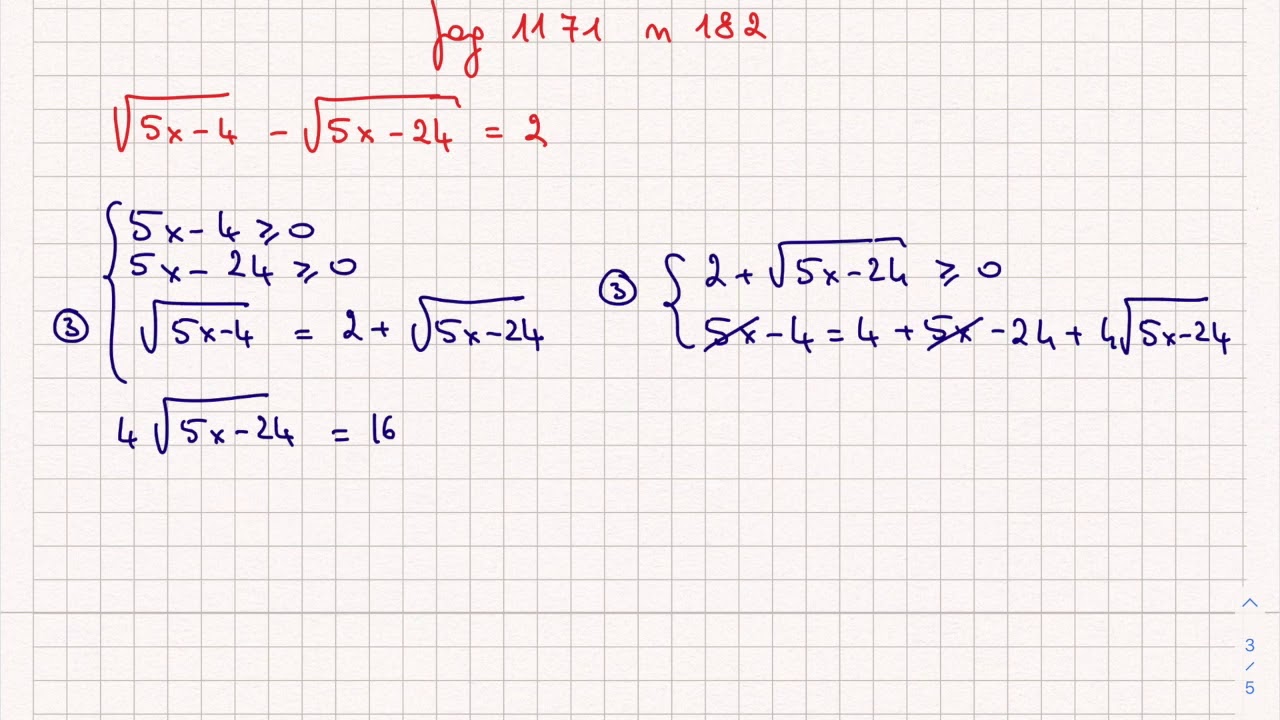 pag 1171 n 182
√5x-4 - √5x-24 = 2
5x-4 ⩾ 0
5x-24 ⩾ 0
③ √5x-4 = 2 + √5x-24
③ 2 + √5x-24 ⩾ 0
5x-4 = 4 + 5x-24 + 4√5x-24
4√5x-24 = 16
3
/
5